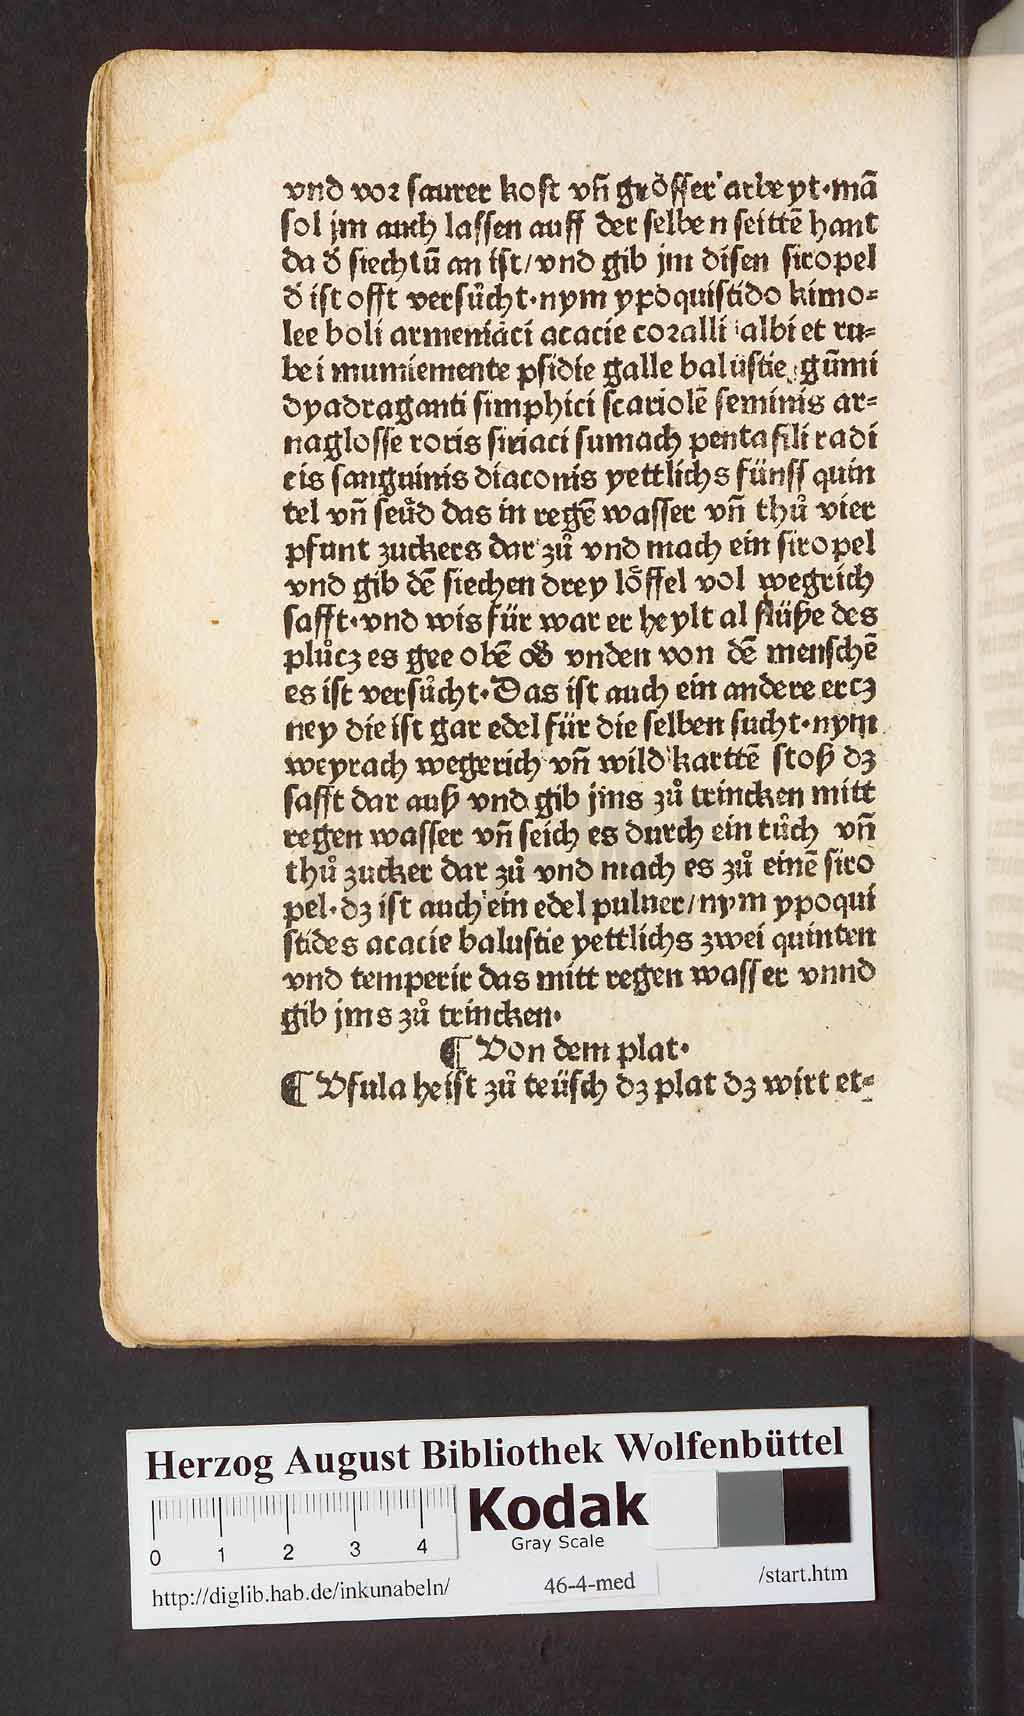 vnd vor saurer kost vn̄ grösser arbeyt·mā
sol jm auch lassen auff der selben seittē hant
da d̓ siechtū an ist/vnd gib jm disen siropel
d̓ ist offt versůcht·nym ypoquistido kimo-
lee boli armeniaci acacie coralli albi et ru-
bei mumiemente psidie galle balustie gūmi
dyadraganti simphici scariolē seminis ar-
naglosse roris siriaci sumach pentafili radi
cis sanguinis diaconis yettlichs fünff quin
tel vn̄ seüd das in regē wasser vn̄ thů vier
pfunt zuckers dar zů vnd mach ein siropel
vnd gib dē siechen drey löffel vol wegrich
safft·vnd wis für war er heylt al flüße des
plůcz es gee obē od̓ vnden von dē menschē
es ist versůcht·Das ist auch ein andere ercz
ney die ist gar edel für die selben sucht·nym
weyrach wegerich vn̄ wild karttē stoß dz
safft dar auß vnd gib jms zů trincken mitt
regen wasser vn̄ seich es durch ein tůch vn̄
thů zucker dar zů vnd mach es zů einē siro
pel·dz ist auch ein edel puluer/nym ypoqui
stides acacie balustie yettlichs zwei quinten
vnd temperir das mitt regen wasser vnnd
gib jms zů trincken·
¶ Von dem plat·
¶ Vsula heist zů teüsch dz plat dz wirt et-
Herzog August Bibliothek Wolfenbüttel
0 1 2 3 4
Kodak
Gray Scale
http://diglib.hab.de/inkunabeln/ 46-4-med /start.htm